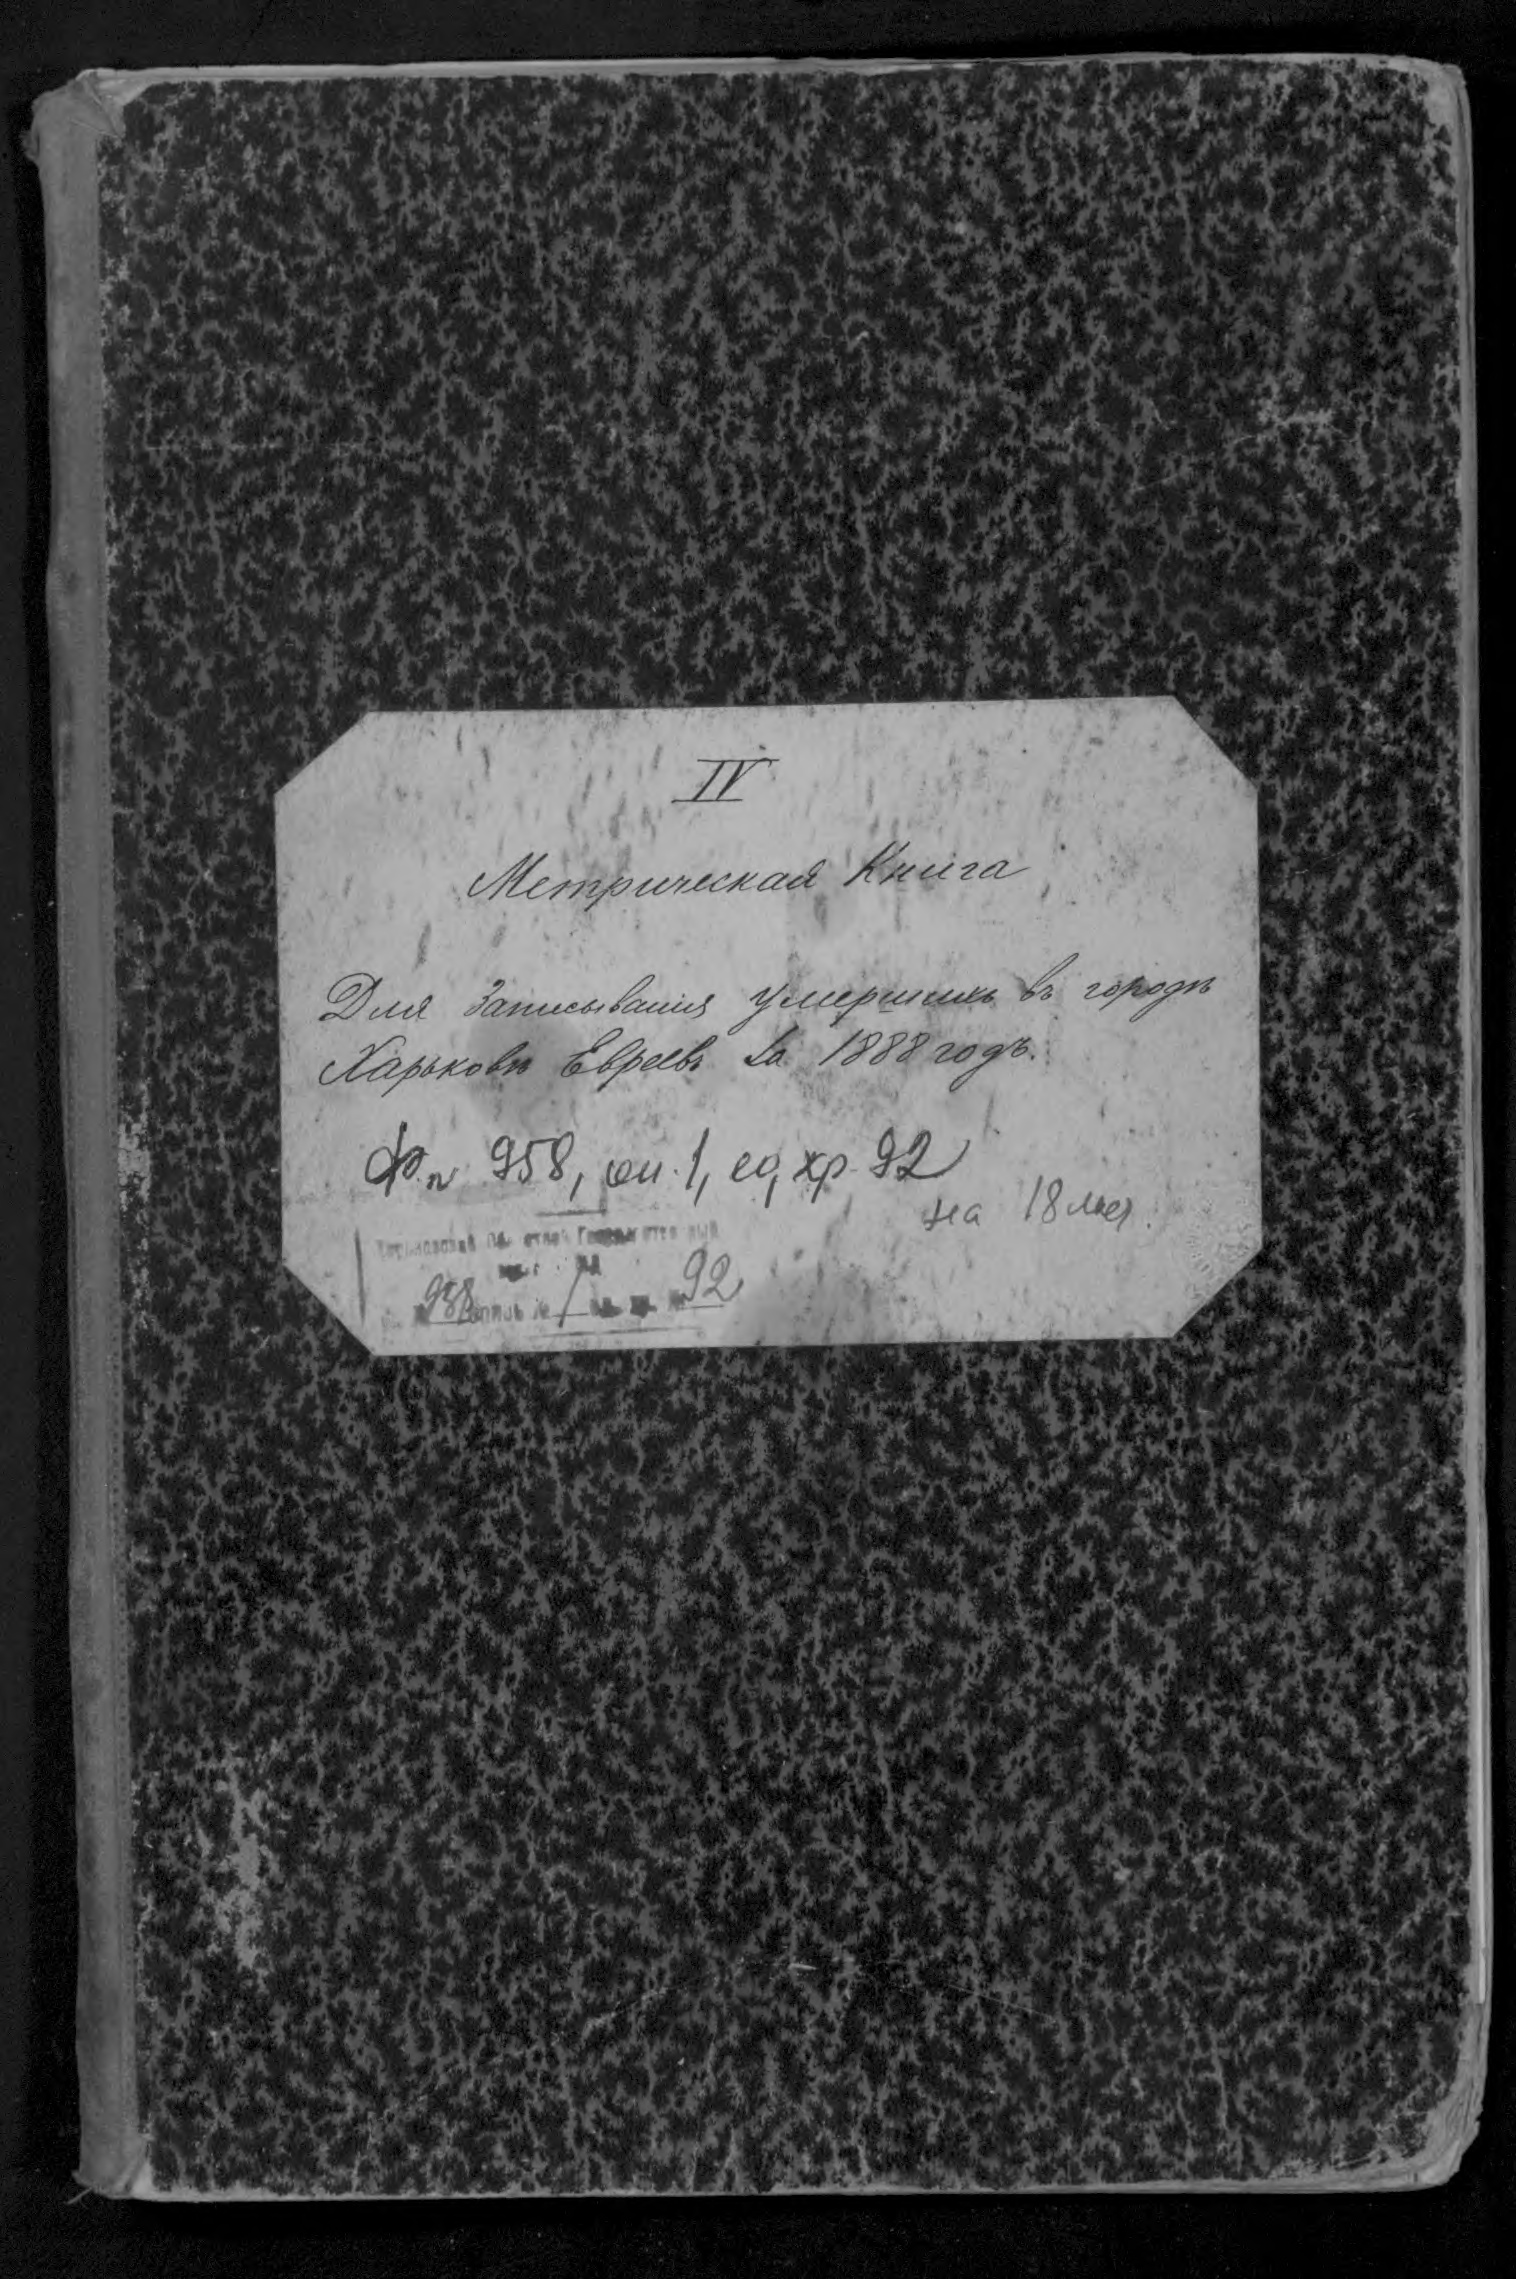 IV
Метрическая Книга
Для Записыванія умершихъ въ городѣ
Харьковѣ Евреевъ За 1888 годъ.
Ф. 958, оп. 1, ед, хр. 92
на 18 лист.
958 опись № 1 ед. хр. № 92